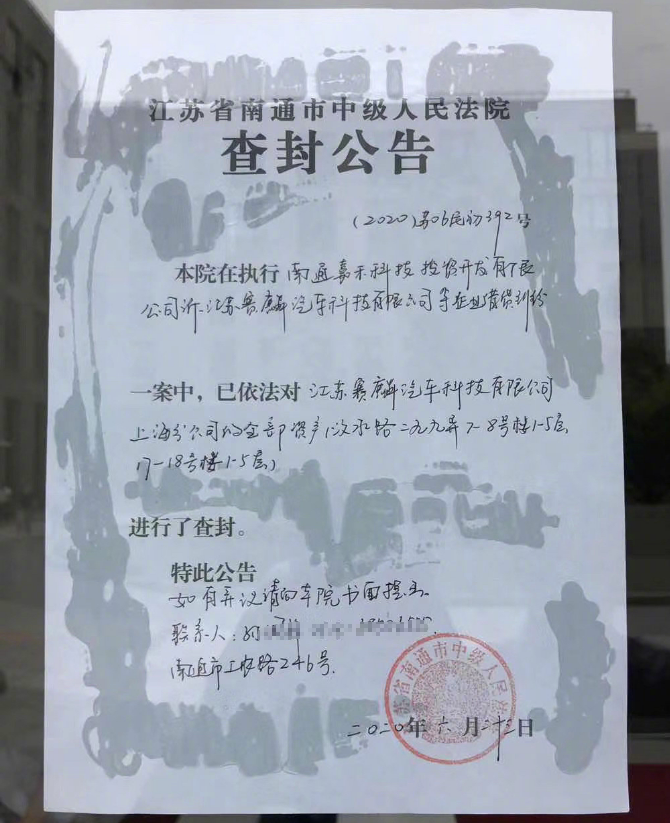 江苏省南通市中级人民法院
查封公告
(2020)苏06民初392号
本院在执行 南通嘉禾科技投资开发有限
公司诉江苏赛麟汽车科技有限公司等企业借贷纠纷
一案中，已依法对 江苏赛麟汽车科技有限公司
上海分公司的全部资产(汶水路二九九弄7-8号楼1-5层
17-18号楼1-5层)
进行了查封。
特此公告
如有异议请向本院书面提出
联系人:
南通市工农路246号.
二〇二〇年六月二十三日
省南通市中级人民法